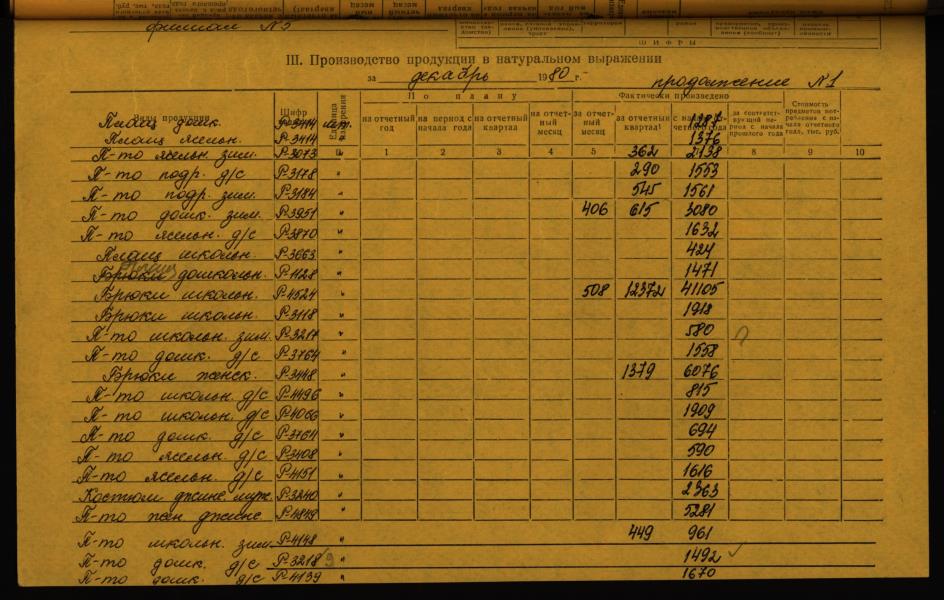 филиал N 5
Ш И Ф Р Ы
III. Производство продукции в натуральном выражении
за декабрь 1980 г. продолжение N1
Виды продукции Шифр Единица измерения По плану Фактически произведено
на отчетный год на период с начала года на отчетный квартал на отчетный месяц за отчетный месяц за отчетный квартал с начала отчетного года за соответствующий период с начала прошлого года Стоимость с начала отчетного года, тыс. руб.
1 2 3 4 5 6 8 9 10
Плащ дошк. шт. 1287
Плащ ясельн. Р-3414 1376
П-то ясельн. зим. Р-3073 " 362 2138
П-то подр. д/с Р-3178 " 290 1553
П-то подр. зим. Р-3184 " 545 1561
П-то дошк. зим. Р-3951 " 406 615 3080
П-то ясельн. д/с Р-3870 " 1632
Плащ школьн. Р-3063 " 424
дошкольн. Р-4128 " 1471
Брюки школьн. Р-4524 " 508 12372 41105
Брюки школьн. Р-3118 " 1918
П-то школьн. зим. Р-3217 " 580
П-то дошк. д/с Р-3764 " 1558
Брюки женск. Р-3448 " 1379 6076
П-то школьн. д/с Р-4496 " 815
П-то школьн. д/с Р-4066 " 1909
П-то дошк. д/с Р-3761 " 694
П-то ясельн. д/с Р-3408 " 590
П-то ясельн. д/с Р-4151 " 1616
Костюм джинс. муж. Р-3240 " 2363
П-то жен. джинс. Р-4849 " 5281
П-то школьн. зим. Р-4148 " 449 961
П-то дошк. д/с Р-3218 " 1492
П-то дошк. д/с Р-4139 " 1670